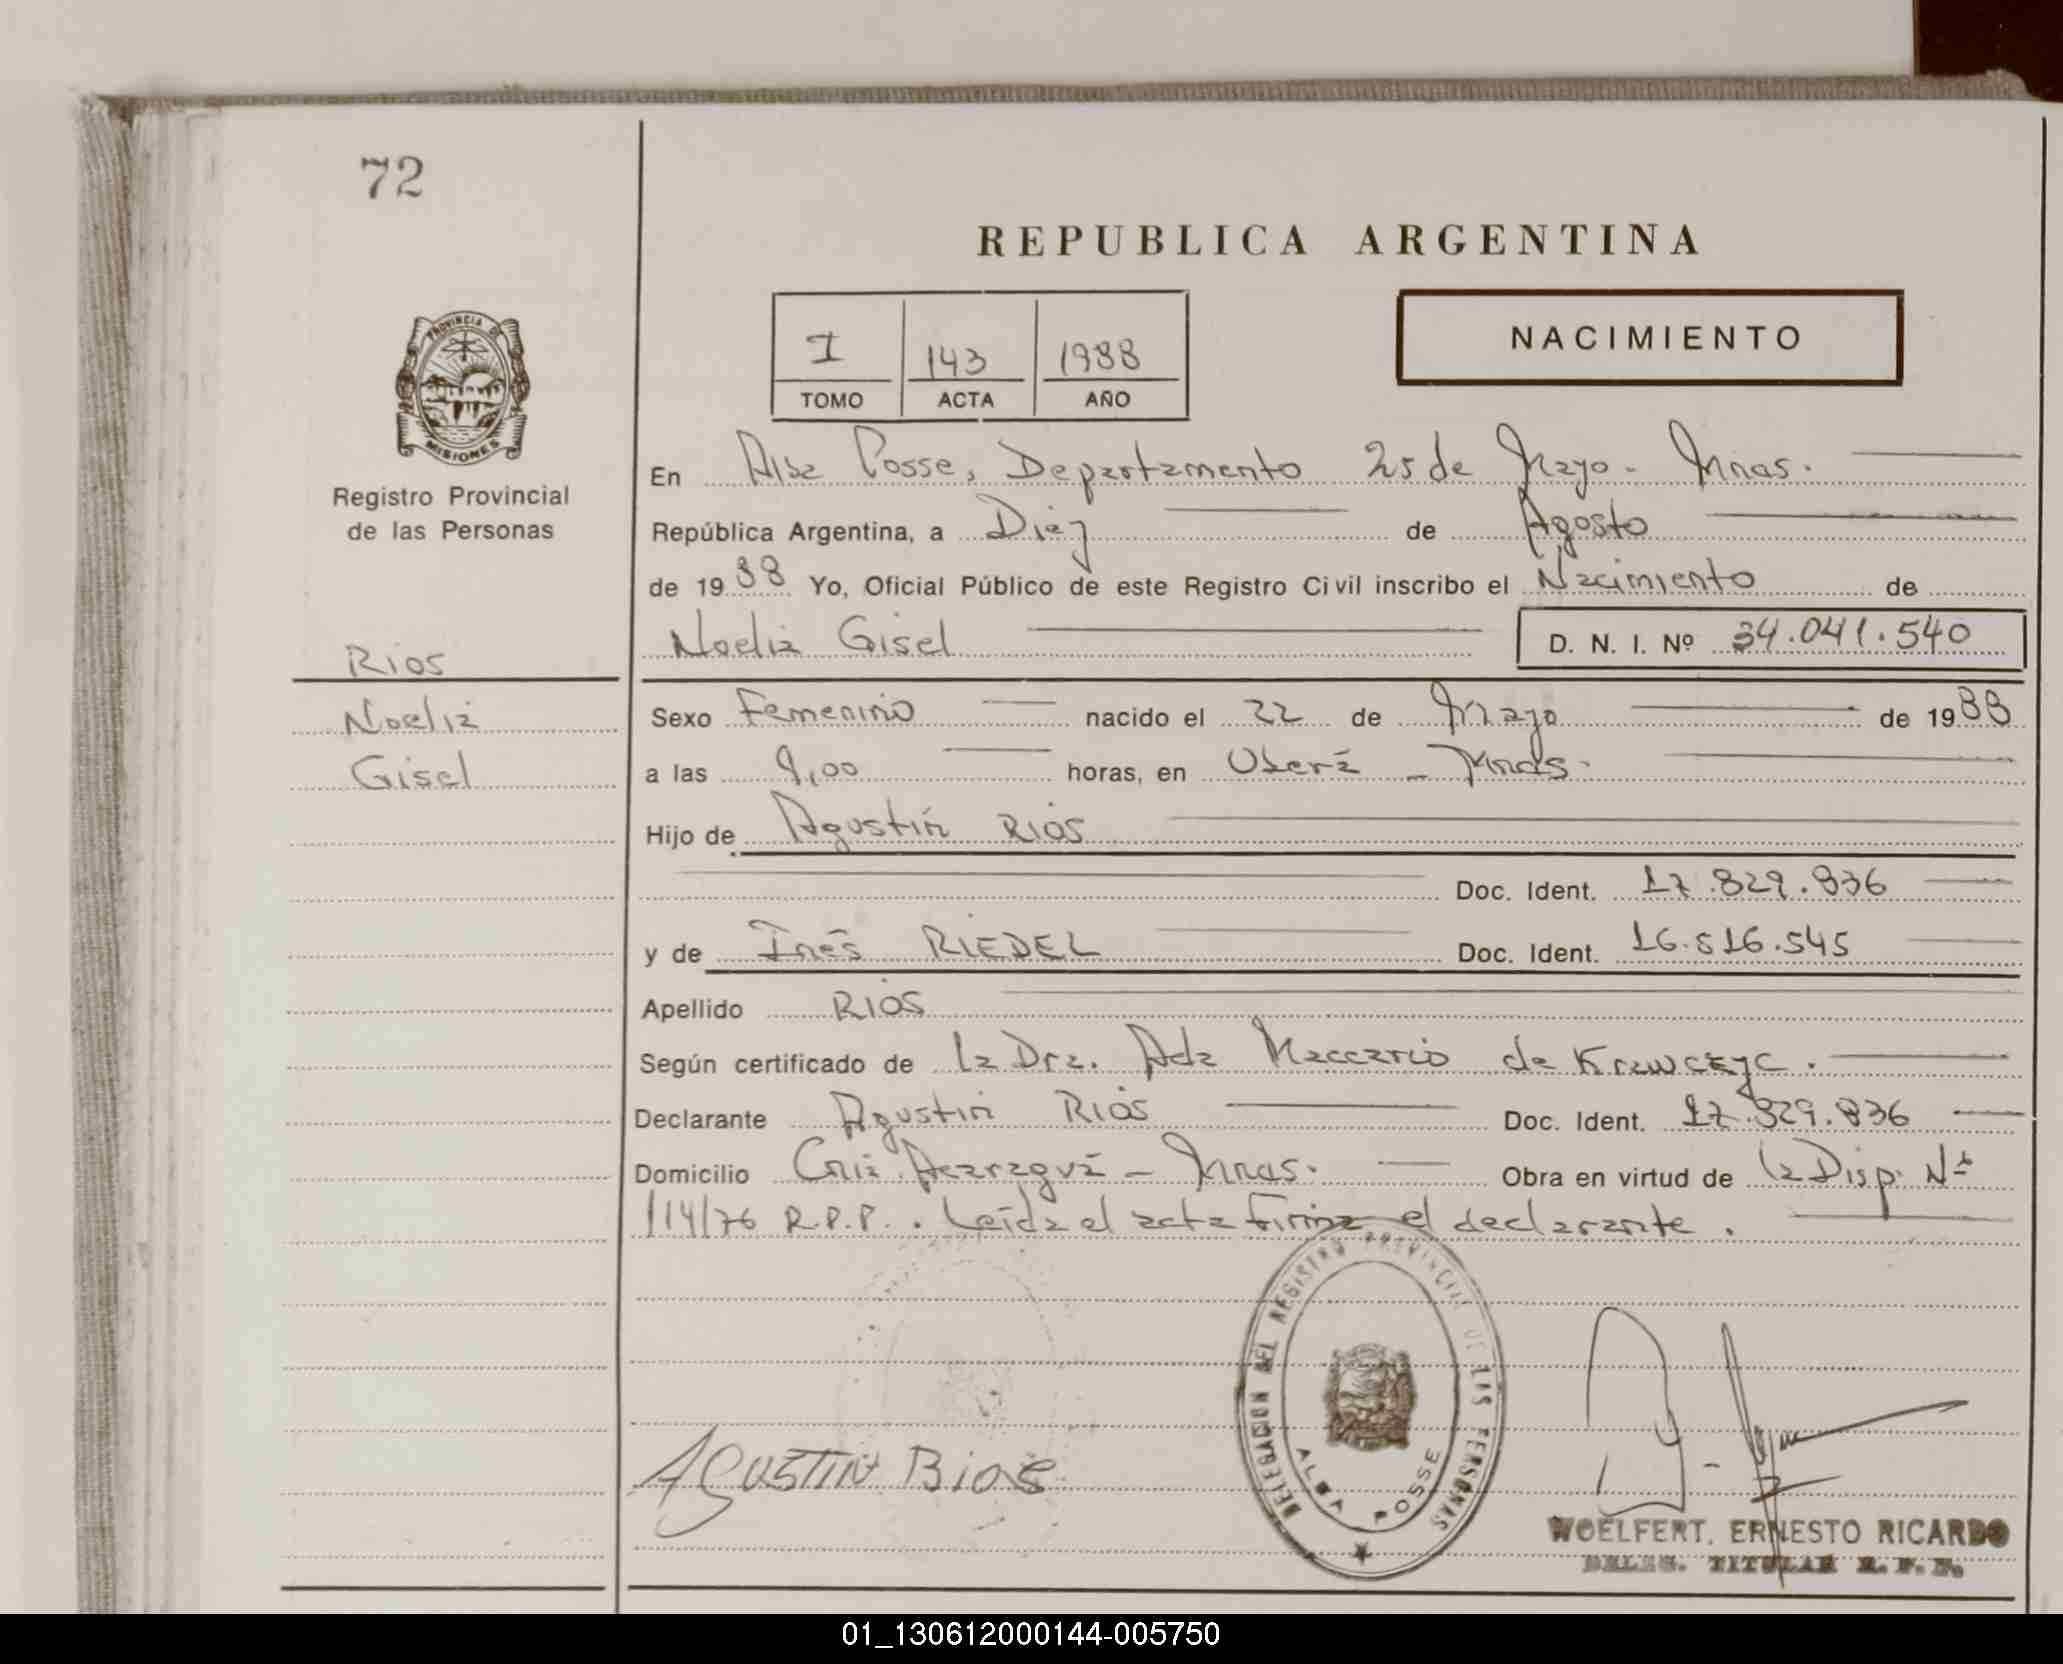 72
REPUBLICA ARGENTINA
NACIMIENTO
I 143 1988
TOMO ACTA AÑO
PROVINCIA DE
MISIONES
Registro Provincial
de las Personas
En Alba Posse, Departamento 25 de Mayo - Mnes.
República Argentina, a Diez de Agosto
de 1988 Yo, Oficial Público de este Registro Civil inscribo el Nacimiento de
Noelia Gisel D. N. I. Nº 34.041.540
Rios
Noelia
Gisel
Sexo Femenino nacido el 22 de Mayo de 1988
a las 9,00 horas, en Oberá - Mnes.
Hijo de Agustín Rios
Doc. Ident. 17.829.836
y de Inés RIEDEL Doc. Ident. 16.516.545
Apellido RIOS
Según certificado de la Dra. Ada Maccario de
Declarante Agustin Rios Doc. Ident. 17.829.836
Domicilio Cnia. Acaraguá - Mnes. Obra en virtud de la Disp. Nº
114/76 R.P.P. . Leída el acta firma el declarante.
DELEGACION DEL REGISTRO PROVINCIAL DE LAS PERSONAS
ALBA POSSE
AGUSTIN RIOS
WOELFERT, ERNESTO RICARDO
DELEG. TITULAR R. P. P.
01_130612000144-005750